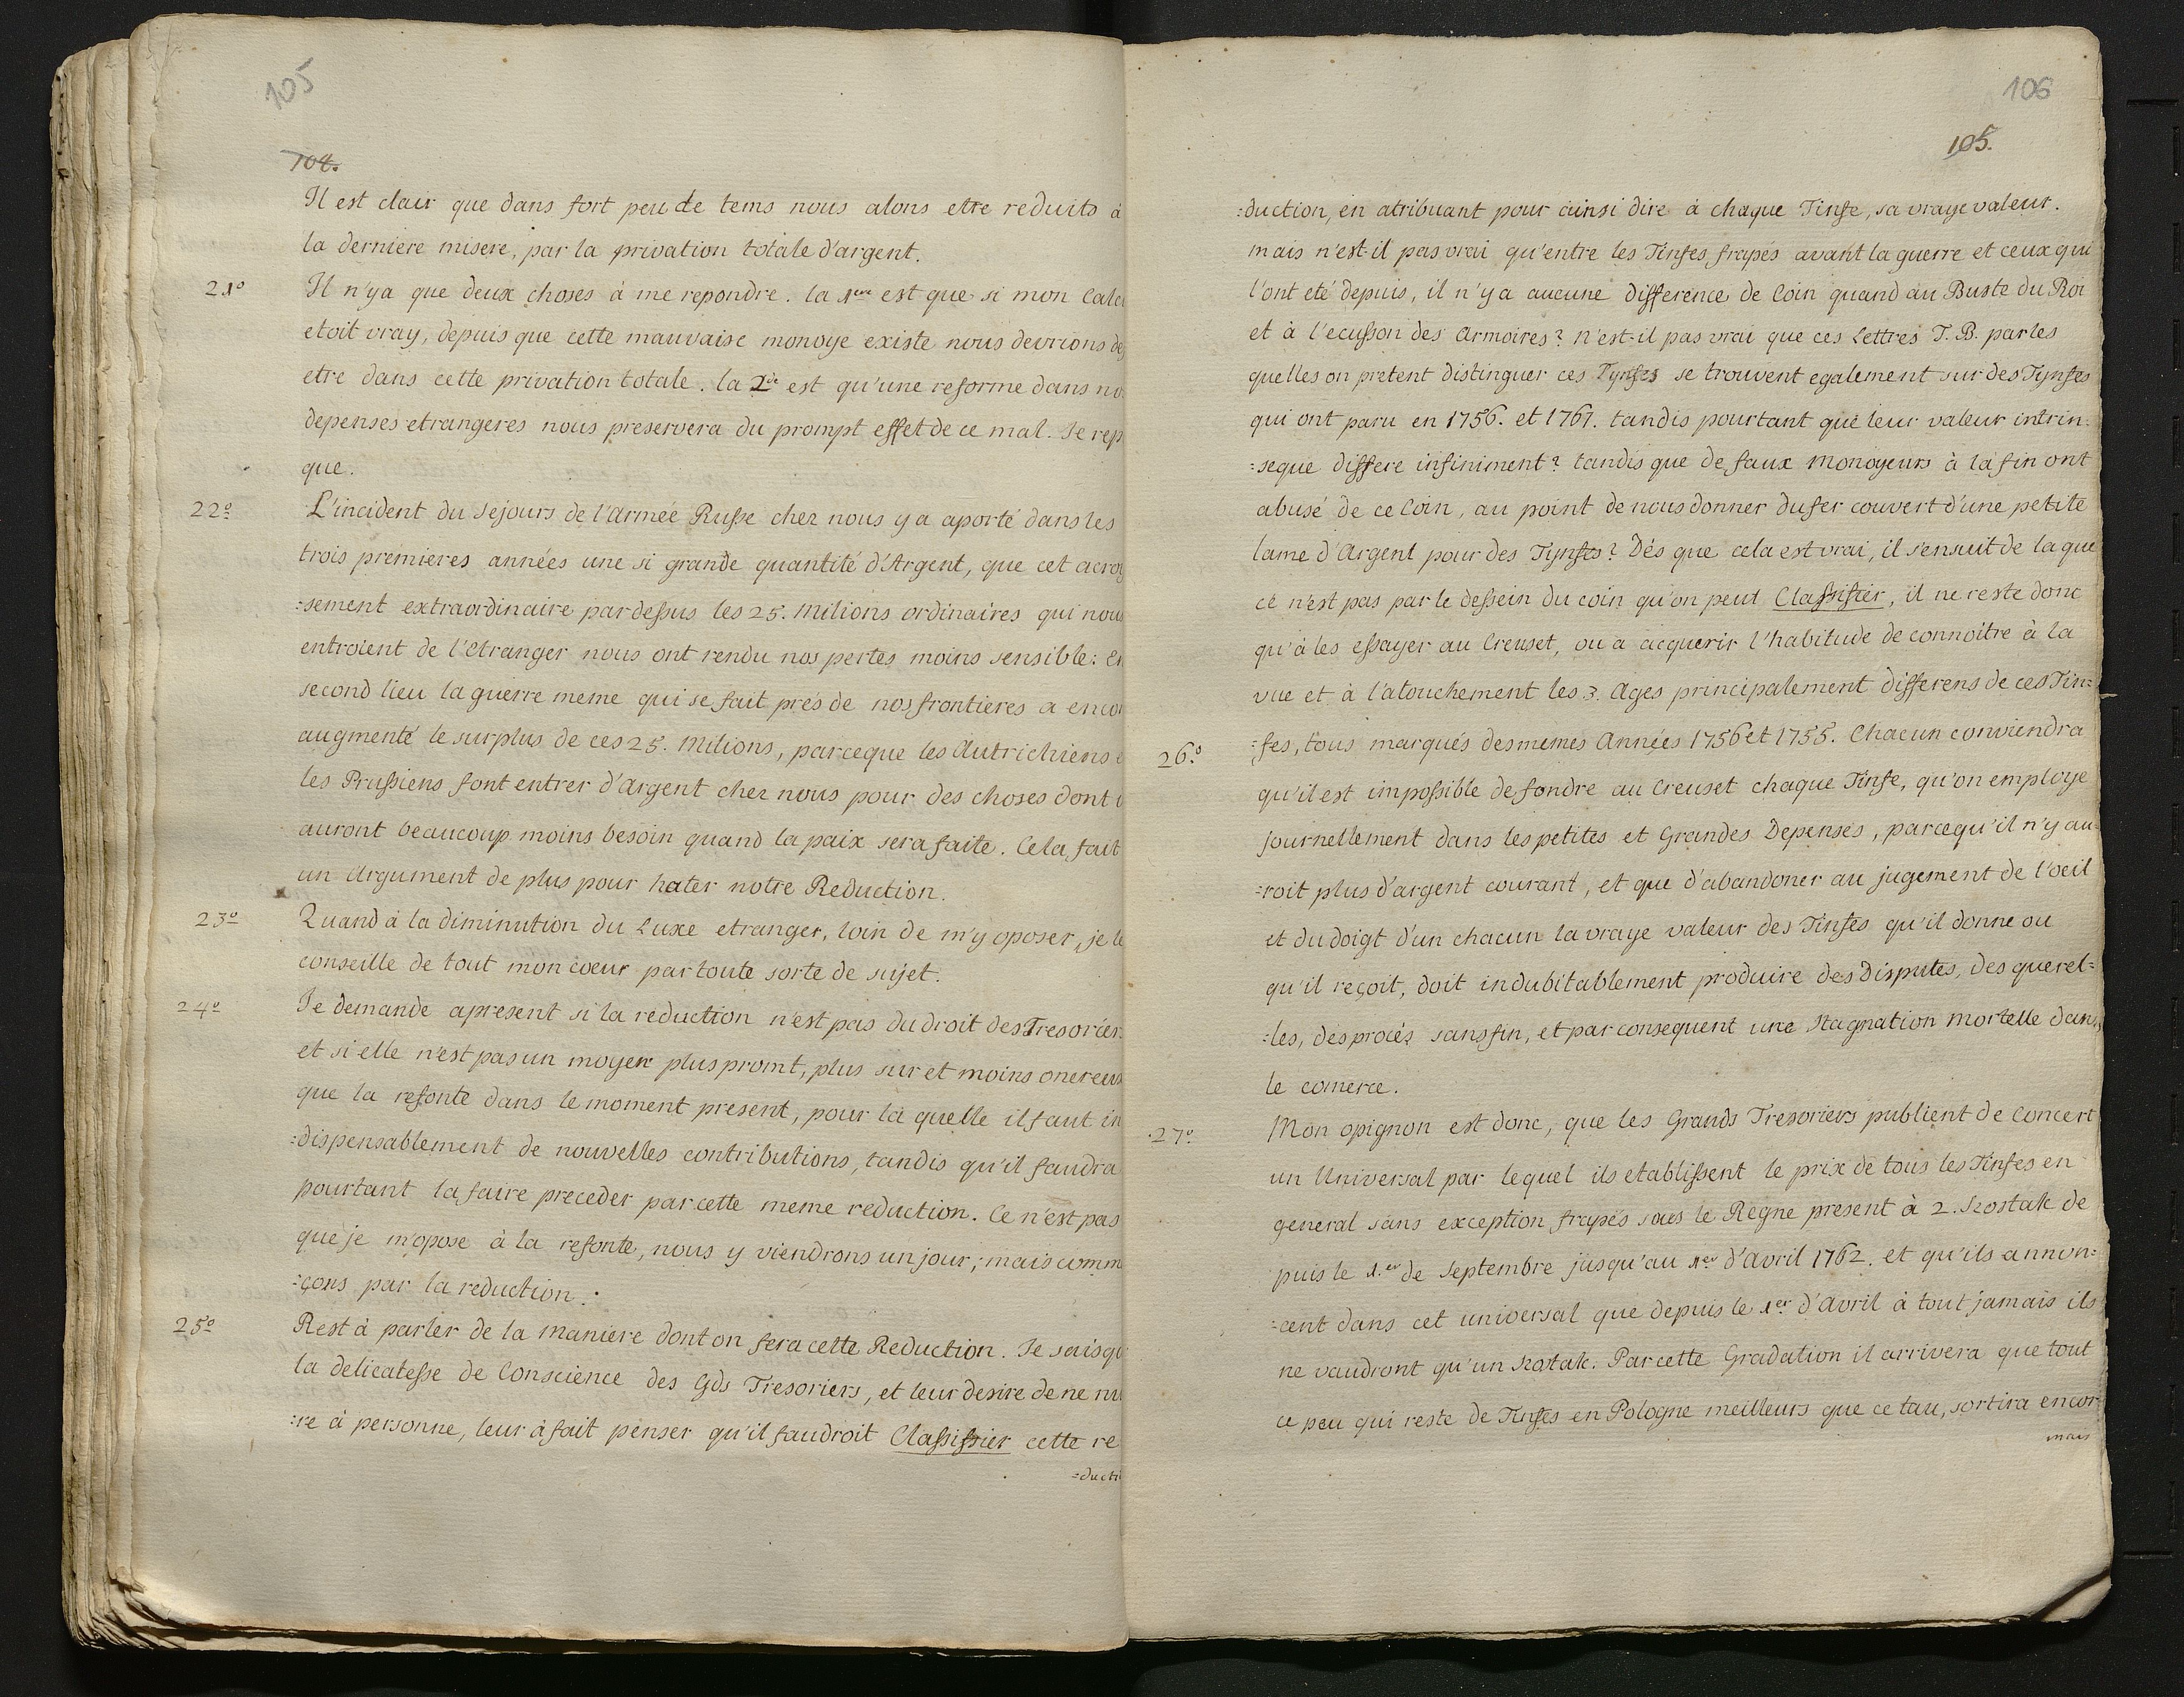 105
104.
Il est clair que dans fort peu de tems nous alons etre reduits à
la derniere misere, par la privation totale d'argent.
21º Il n'ya que deux choses à me repondre. la 1ere est que si mon Calc
etoit vray, depuis que cette mauvaise monoye existe nous devrions de
etre dans cette privation totale. la 2de est qu'une reforme dans no
depenses etrangeres nous preservera du prompt effet de ce mal. Je rep
que.
22º L'incident du sejours de l'Armée Russe chez nous y a aporté dans les
trois premieres années une si grande quantité d'Argent, que cet acroi
=sement extraordinaire pardessus les 25. Milions ordinaires qui nous
entroient de l'etranger nous ont rendu nos pertes moins sensible: En
second lieu la guerre meme qui se fait prés de nos frontieres a enco
augmenté le surplus de ces 25. Milions, parceque les Autrichiens e
les Prussiens font entrer d'Argent chez nous pour des choses dont i
auront beaucoup moins besoin quand la paix sera faite. Cela fait
un Argument de plus pour hater notre Reduction.
23º Quand à la diminution du Luxe etranger, loin de m'y oposer, je le
conseille de tout mon coeur par toute sorte de sujet.
24º Je demande apresent si la reduction n'est pas du droit des Tresorier
et si elle n'est pas un moyen plus promt, plus sur et moins onereux
que la refonte dans le moment present, pour la quelle il faut in
=dispensablement de nouvelles contributions, tandis qu'il faudra
pourtant la faire preceder par cette meme reduction. Ce n'est pas
que je m'opose à la refonte, nous y viendrons un jour; mais comm
=çons par la reduction.
25º Rest à parler de la maniere dont on fera cette Reduction. Je sais qu
la delicatesse de Conscience des Gds Tresoriers, et leur desire de ne nu
=re à personne, leur à fait penser qu'il faudroit Classifier cette re
=ducti
106
105.
=duction, en atribuant pour ainsi dire à chaque Tinfe, sa vraye valeur.
mais n'est-il pas vrai qu'entre les Tinfes frapés avant la guerre et ceux qui
l'ont eté depuis, il n'y a aucune difference de Coin quand au Buste du Roi
et à l'ecusson des Armoires? n'est-il pas vrai que ces Lettres T. B. par les
quelles on pretent distinguer ces Tynfes se trouvent egalement sur des Tynfes
qui ont paru en 1756. et 1761. tandis pourtant que leur valeur intrin=
=seque differe infiniment? tandis que de faux Monoyeurs à la fin ont
abusé de ce Coin, au point de nous donner du fer couvert d'une petite
lame d'Argent pour des Tynfes? Dés que cela est vrai, il s'ensuit de la que
ce n'est pas par le dessein du coin qu'on peut Classifier, il ne reste donc
qu'à les essayer au Creuset, ou a acquerir l'habitude de connoitre à la
vue et à l'atouchement les 3. Ages principalement differens de ces Tin=
=fes, tous marqués des mêmes Années 1756 et 1755. Chacun conviendra
26º qu'il est impossible de fondre au Creuset chaque Tinfe, qu'on employe
journellement dans les petites et Grandes Depenses, parcequ'il n'y au=
=roit plus d'argent courant, et que d'abandoner au jugement de l'oeil
et du doigt d'un chacun la vraye valeur des Tinfes qu'il donne ou
qu'il reçoit, doit indubitablement produire des Disputes, des querel=
=les, des procés sans fin, et par consequent une stagnation mortelle dans
le comerce.
27º Mon opignon est donc, que les Grands Tresoriers publient de Concert
un Universal par lequel ils etablissent le prix de tous les Tinfes en
general sans exception frapés sous le Regne present à 2. Szostak de
puis le 1.er de Septembre jusqu'au 1er d'Avril 1762. et qu'ils annon=
=cent dans cet universal que depuis le 1er d'Avril à tout jamais ils
ne vaudront qu'un szostak. Par cette Gradation il arrivera que tout
ce peu qui reste de Tinfes en Pologne meilleurs que ce tau, sortira encor
mais